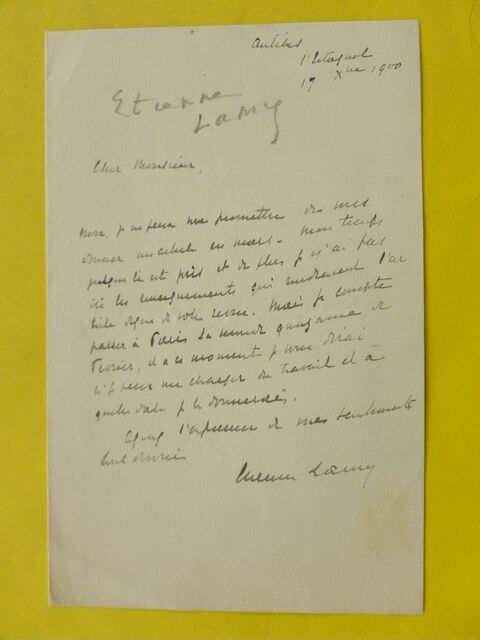 Antibes
l'Estagnol
17 Xbre 1900
Etienne
Lamy
Cher Monsieur,
je ne peux me promettre de vous
donner un article en mars. Mon temps
jusque là est pris et de plus je n'ai pas
ici les renseignements qui rendraient l'ar
ticle digne de votre revue. Mais je compte
passer à Paris la seconde quinzaine de
Février, et à ce moment je vous dirai
si je peux me charger du travail et à
quelle date je le donnerais.
Agréez l'expression de mes sentiments
Etienne Lamy